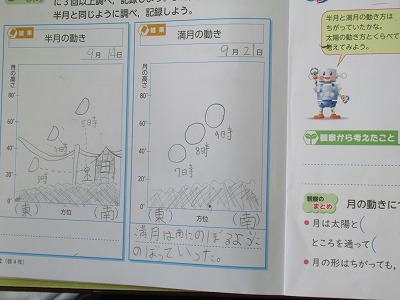 に3回以上調べ，記録しよう。
半月と同じように調べ，記録しよう。
結果
半月の動き
9月14日
月の高さ
80°
60°
40°
20°
0
5時
(東)
方位
(南)
結果
満月の動き
9月21日
月の高さ
80°
60°
40°
20°
0
9時
8時
7時
(東)
方位
(南)
満月は南にのぼるように
のぼっていった。
半月と満月の動き方は
ちがっていたかな。
太陽の動きとくらべて
考えてみよう。
観察から考えたこと
観察の
まとめ
月の動きに
●月は太陽と(
ところを通って(
●月の形はちがっても,